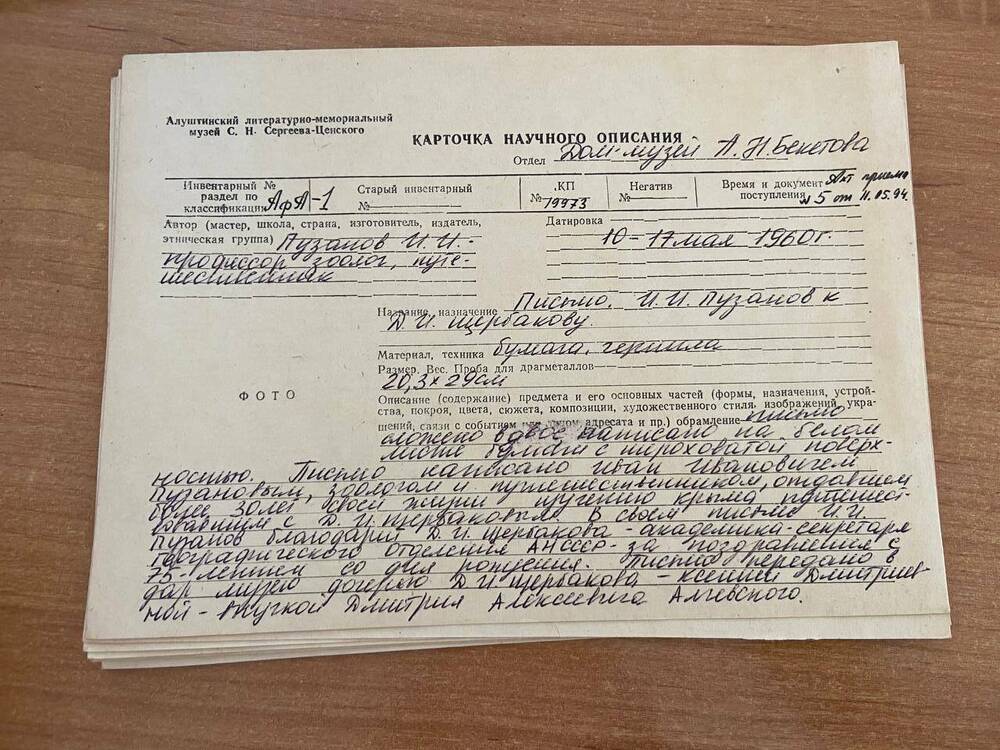 Алуштинский литературно-мемориальный
музей С. Н. Сергеева-Ценского
КАРТОЧКА НАУЧНОГО ОПИСАНИЯ
Отдел Дом-музей А.Н.Бекетова
Инвентарный №
раздел по
классификации АфА-1
Старый инвентарный
№
КП
№ 19973
Негатив
№
Время и документ
поступления Акт приема
№5 от 11.05.94.
Автор (мастер, школа, страна, изготовитель, издатель,
этническая группа) Пузанов И.И.-
профессор зоолог, путе-
шественник
Датировка
10-17 мая 1960г.
Название, назначение Письмо. И.И. Пузанов к
Д.И. Щербакову.
Материал, техника бумага, чернила
Размер. Вес. Проба для драгметаллов
20,3х29см
ФОТО
Описание (содержание) предмета и его основных частей (формы, назначения, устрой-
ства, покроя, цвета, сюжета, композиции, художественного стиля, изображений, укра-
шений, связи с событием адресата и пр.) обрамление письмо
сложено вдвое написано на белом
листе бумаги с шероховатой поверх-
ностью. Письмо написано Иван Ивановичем
Пузановым, зоологом и путешественником, отдавшем
более 30 лет своей жизни изучению Крыма путешест-
вовавшим с Д.И.Щербаковым. В своем письме И.И.
Пузанов благодарит Д.И.Щербакова-академика-секретаря
географического отделения АН СССР-за поздравления с
75-летием со дня рождения. Письмо передано в
дар музею дочерью Д.И Щербакова-Ксенией Дмитриев-
ной-внучкой Дмитрия Алексеевича Алчевского.